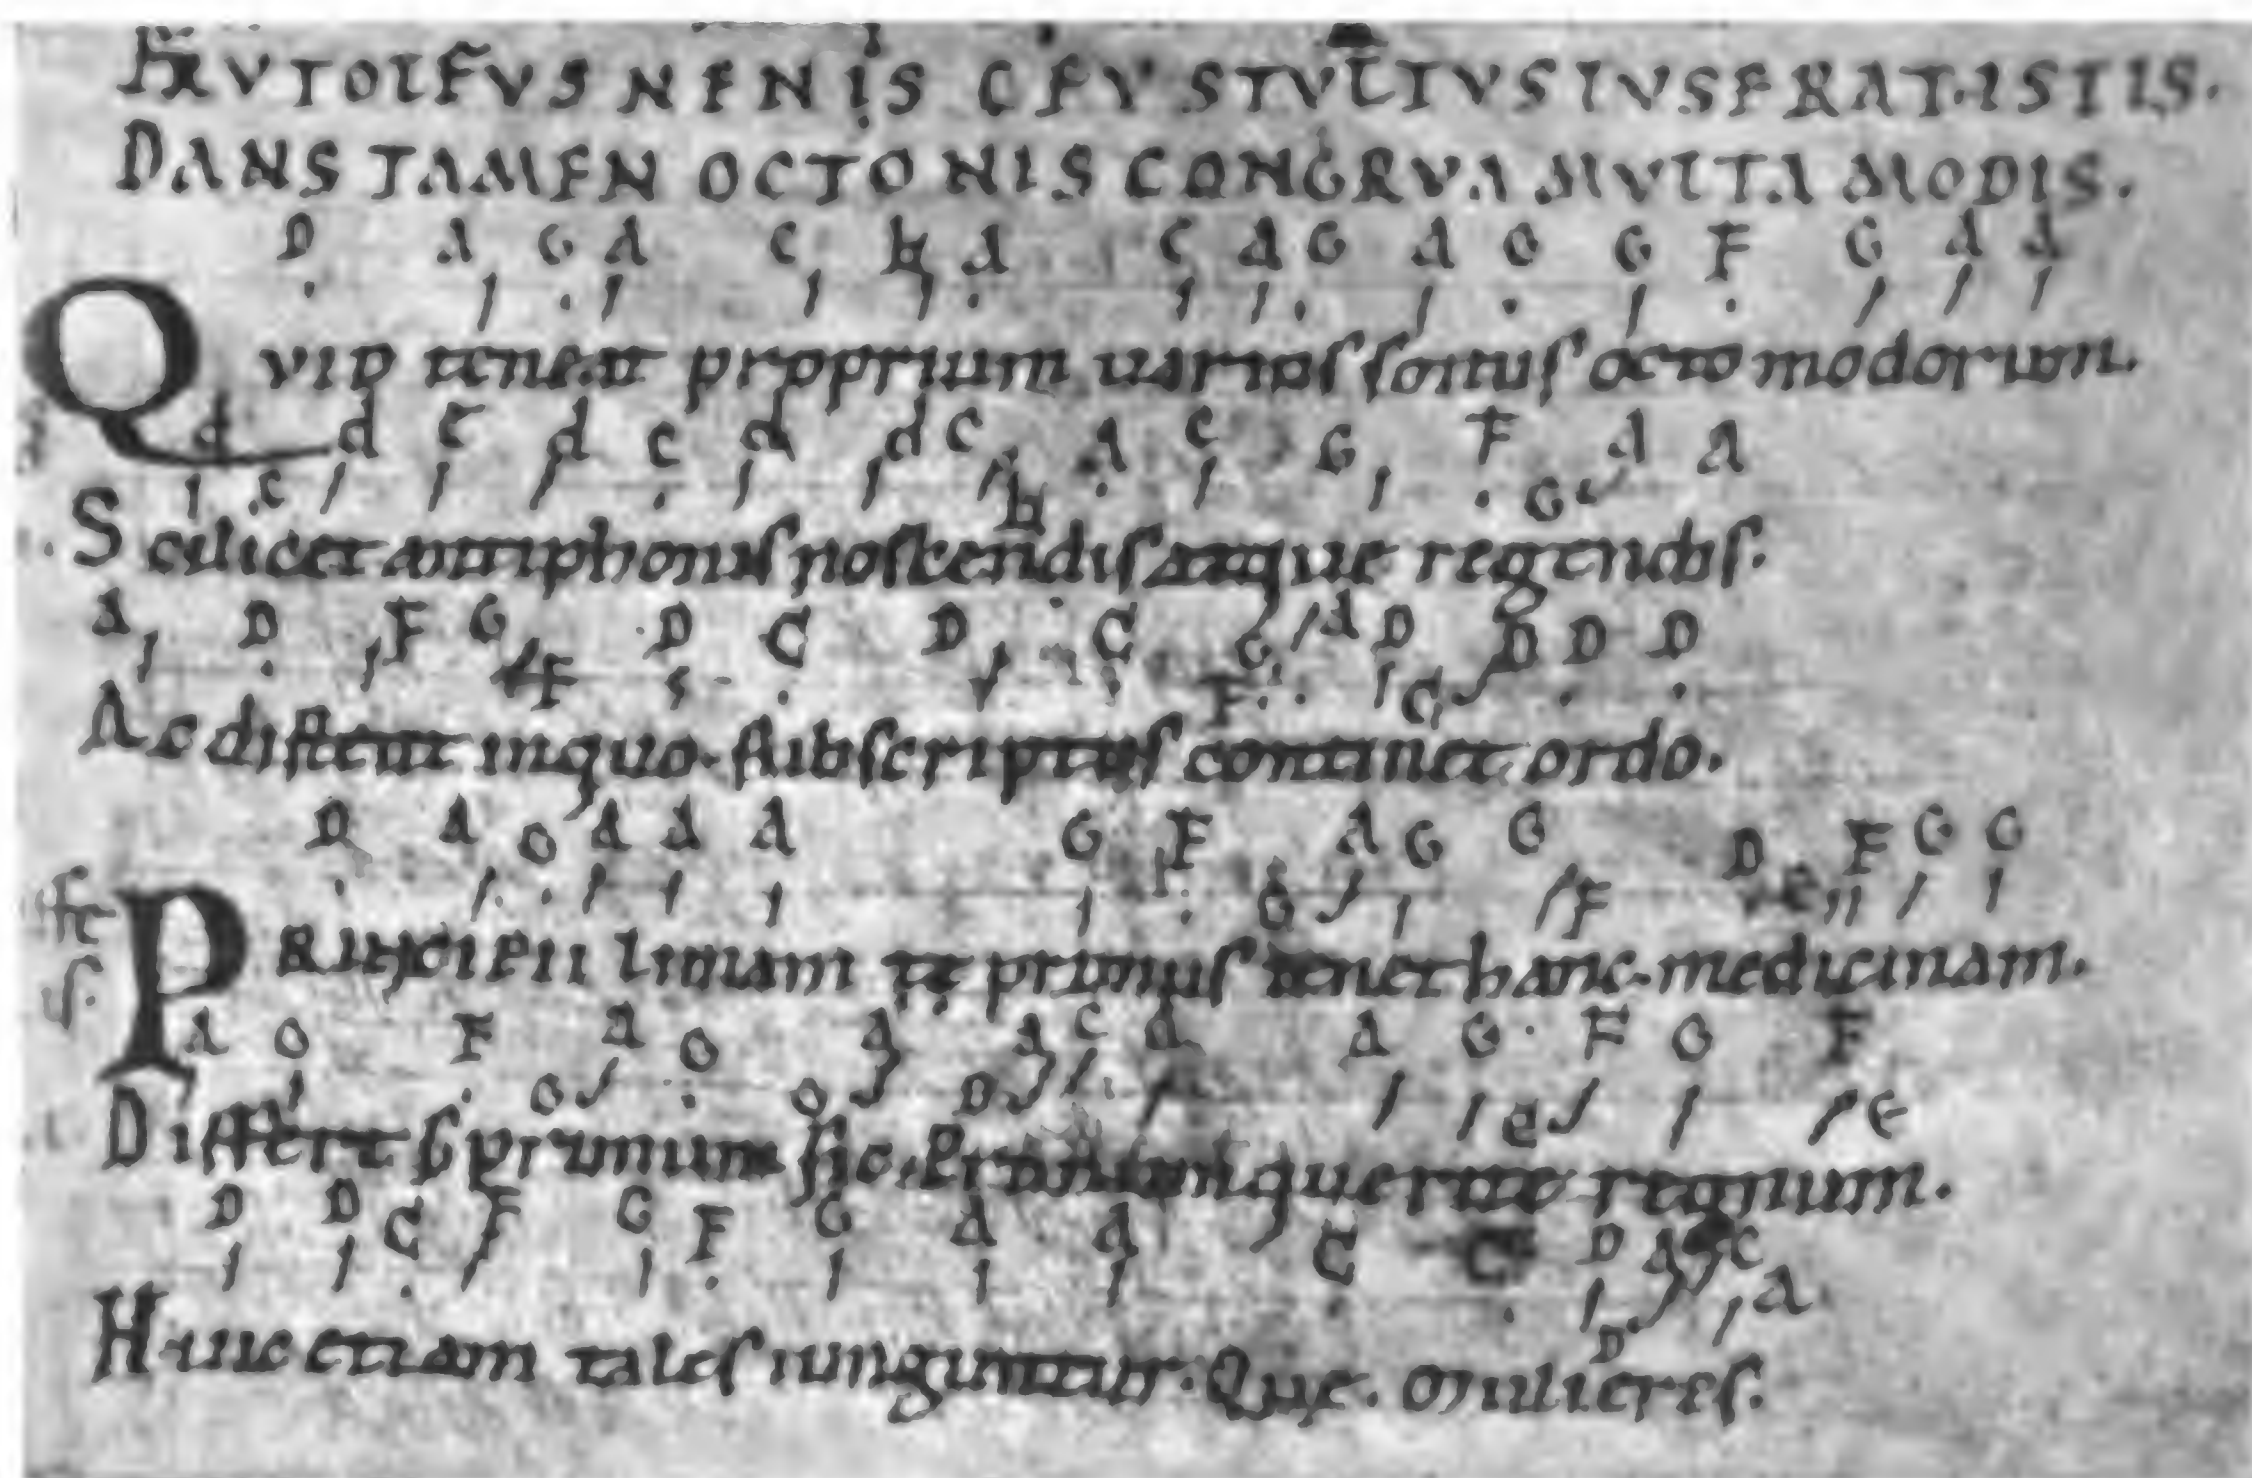 FRVTOLFVS NENIS CEV STVLTVS LVSERAT ISTIS.
DANS TAMEN OCTONIS CONGRVA MVLTA MODIS.
D A G A C h A C A G A G G F G A A
QVID teneat proprium uarios sonus octo modorum.
d c d c d c d d c h A C G F G A A
Scilicet antiphonis noscendis atque regendis.
A D F G F D C D C F G A D C D D D
Ac distent in quo subscriptus continet ordo.
D A G A A A G F G A G G F D e F G G
PRINCIPII limam te primus tenet hanc medicinam.
A G F G A G G A D A C A A G e F G F e
Differt primum sic. querite regnum.
D D C F G F G A A C C D D A C A
Huic etiam tales iunguntur. Que. mulieres.